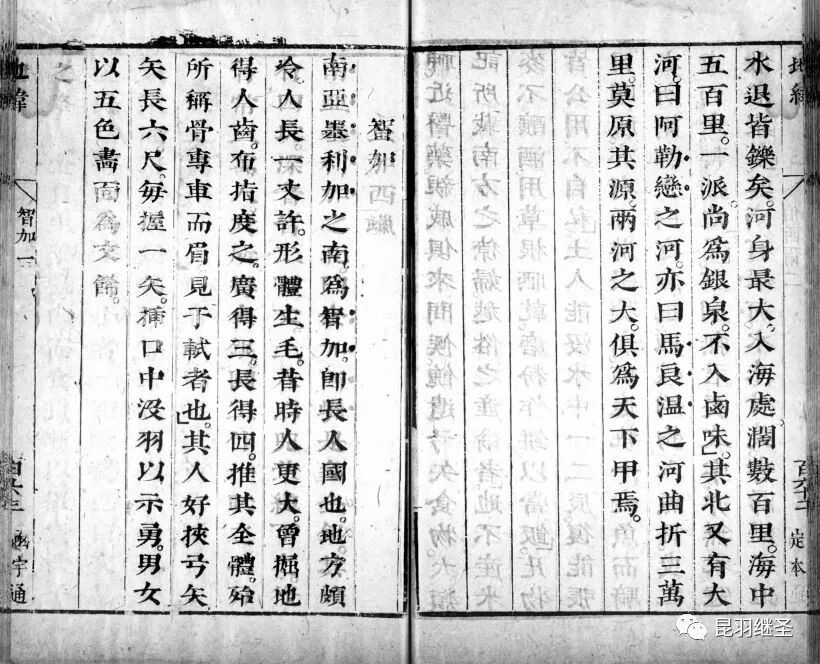 水退皆鑠矣。河身最大。入海處。濶數百里。海中
五百里。一派。尚爲銀泉。不入鹵味。其北又有大
河。曰阿勒戀之河。亦曰馬良温之河。曲折三萬
里。莫原其源。兩河之大。俱爲天下甲焉。
智加西蠟
南亞墨利加之南。爲智加。卽長人國也。地方頗
冷。人長一丈許。形體生毛。昔時人更大。曾掘地
得人齒。布指度之。廣得三。長得四。推其全體。殆
所稱骨專車而眉見于軾者也。其人好挾弓矢
矢長六尺。每握一矢。揷口中没羽以示勇。男女
以五色畵面爲文餙。
地緯
智加
百六十三
函宇通
地緯
百六十二
定本
昆羽继圣